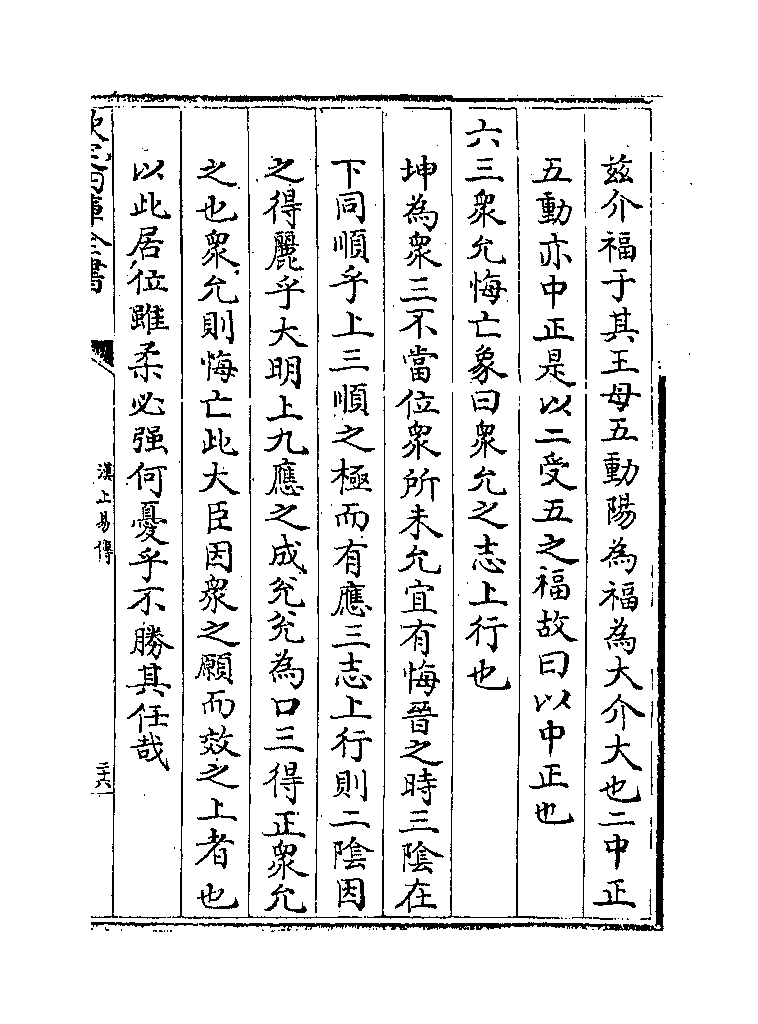 茲介福于其王母五動陽為福為大介大也二中正
五動亦中正是以二受五之福故曰以中正也
六三衆允悔亡象曰衆允之志上行也
坤為衆三不當位衆所未允宜有悔晉之時三陰在
下同順乎上三順之極而有應三志上行則二陰因
之得麗乎大明上九應之成兊兊為口三得正衆允
之也衆允則悔亡此大臣因衆之願而效之上者也
以此居位雖柔必强何憂乎不勝其任哉
欽定四庫全書
漢上易傳
二十六